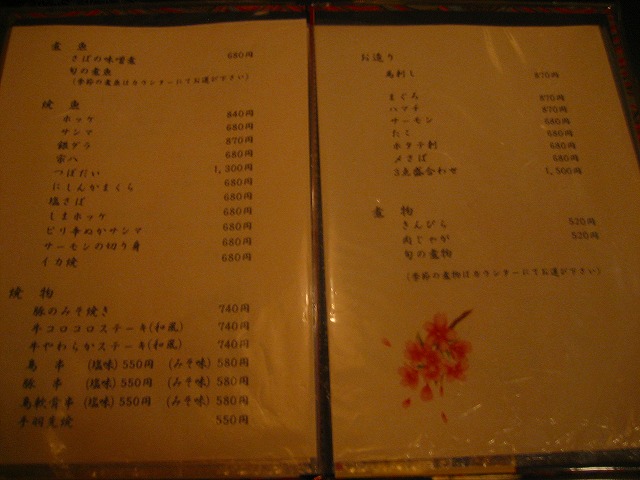 煮　魚
さばの味噌煮 680円
旬の煮魚
(季節の煮魚はカウンターにてお選び下さい)
焼　魚
ホッケ 840円
サンマ 680円
銀ダラ 870円
宗八 680円
つぼだい 1,300円
にしんかまくら 680円
塩さば 680円
しまホッケ 680円
ピリ辛ぬかサンマ 680円
サーモンの切り身 680円
イカ焼 680円
焼　物
豚のみそ焼き 740円
牛コロコロステーキ(和風) 740円
牛やわらかステーキ(和風) 740円
鳥　串 (塩味) 550円 (みそ味) 580円
豚　串 (塩味) 550円 (みそ味) 580円
鳥軟骨串 (塩味) 550円 (みそ味) 580円
手羽先焼 550円
お造り
馬刺し 870円
まぐろ 870円
ハマチ 870円
サーモン 680円
たこ 680円
ホタテ刺 680円
〆さば 680円
3点盛合わせ 1,500円
煮　物
きんぴら 520円
肉じゃが 520円
旬の煮物
(季節の煮物はカウンターにてお選び下さい)